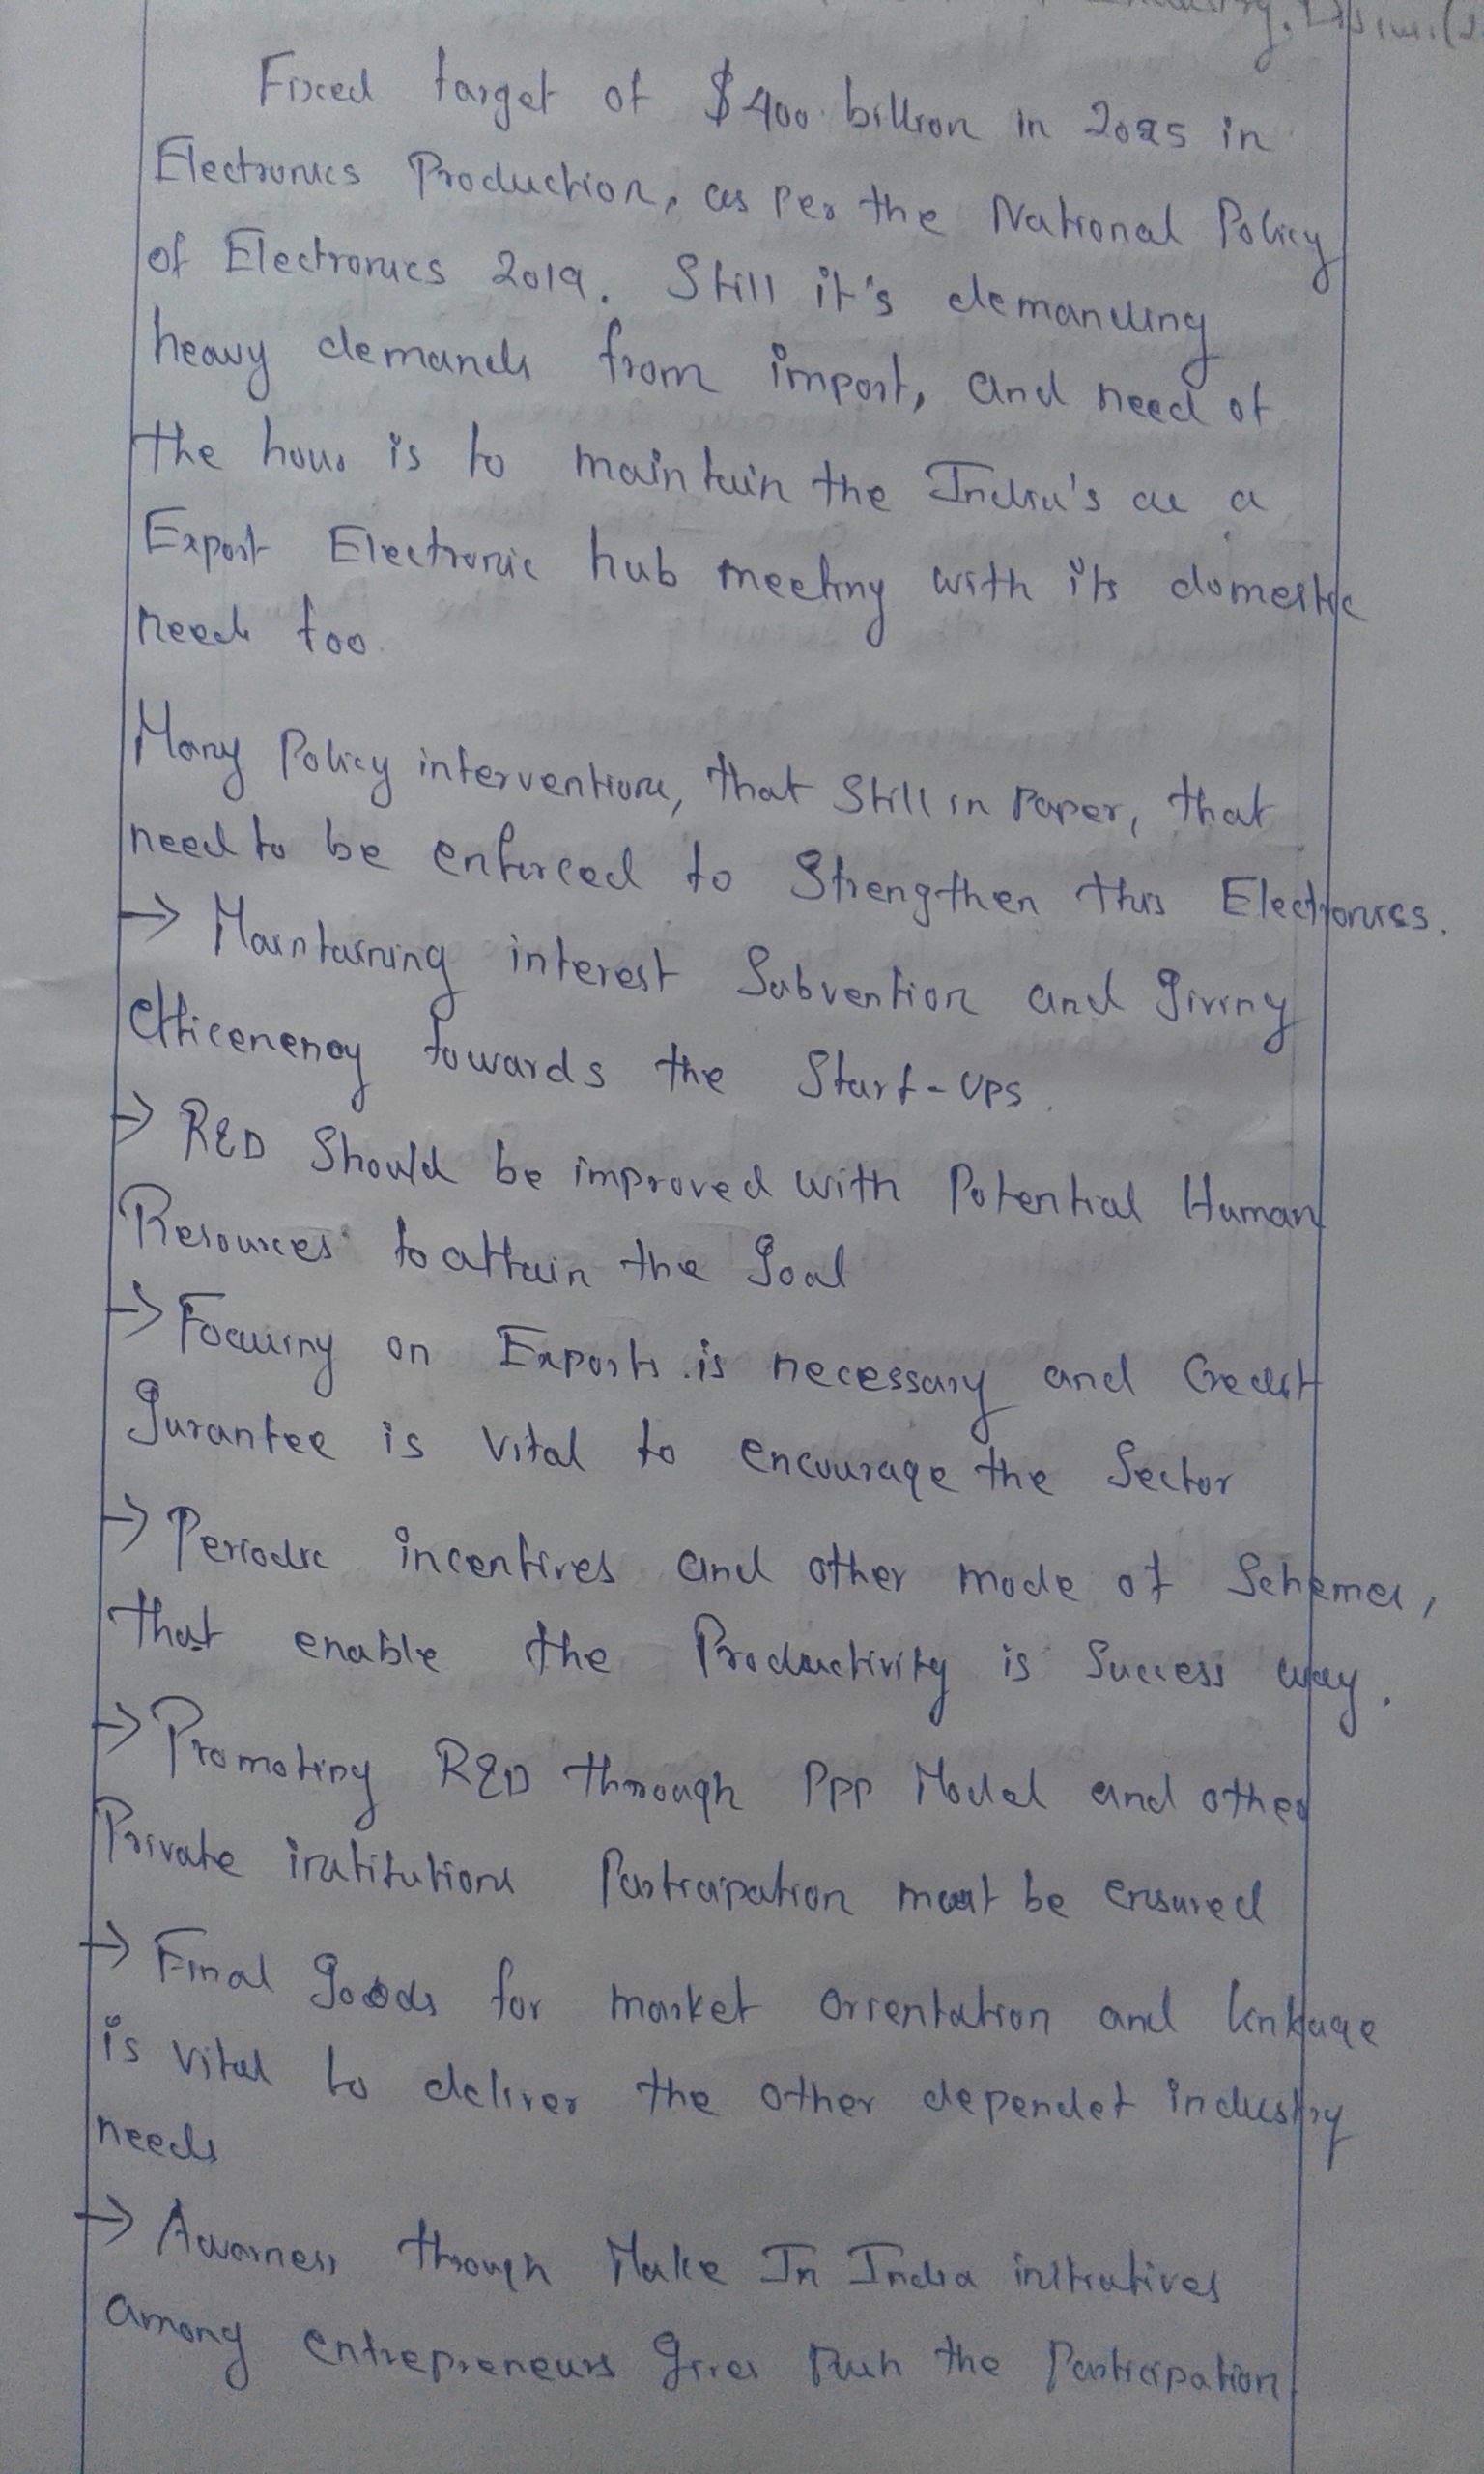 Fixed target of $400 billion in 2025 in
Electronics Production, as per the National Policy
of Electronics 2019. Still it's demanding
heavy demands from import, and need of
the hour is to maintain the India's as a
Export Electronic hub meeting with its domestic
needs too.
Many Policy interventions, that still in paper, that
need to be enforced to Strengthen this Electronics.
→ Maintaining interest Subvention and giving
efficenency towards the Start-ups.
→ R&D Should be improved with Potential Human
Resources to attain the goal
→ Focusing on Exports is necessary and Credit
gurantee is vital to encourage the Sector
→ Periodic incentives and other mode of Schemes,
that enable the Productivity is Success way.
→ Promoting R&D through PPP Model and other
Private institutions Participation must be ensured
→ Final goods for market orientation and linkage
is vital to deliver the other dependet industry
needs
→ Awarness through Make In India initiatives
among entrepreneurs gives Push the Participation.